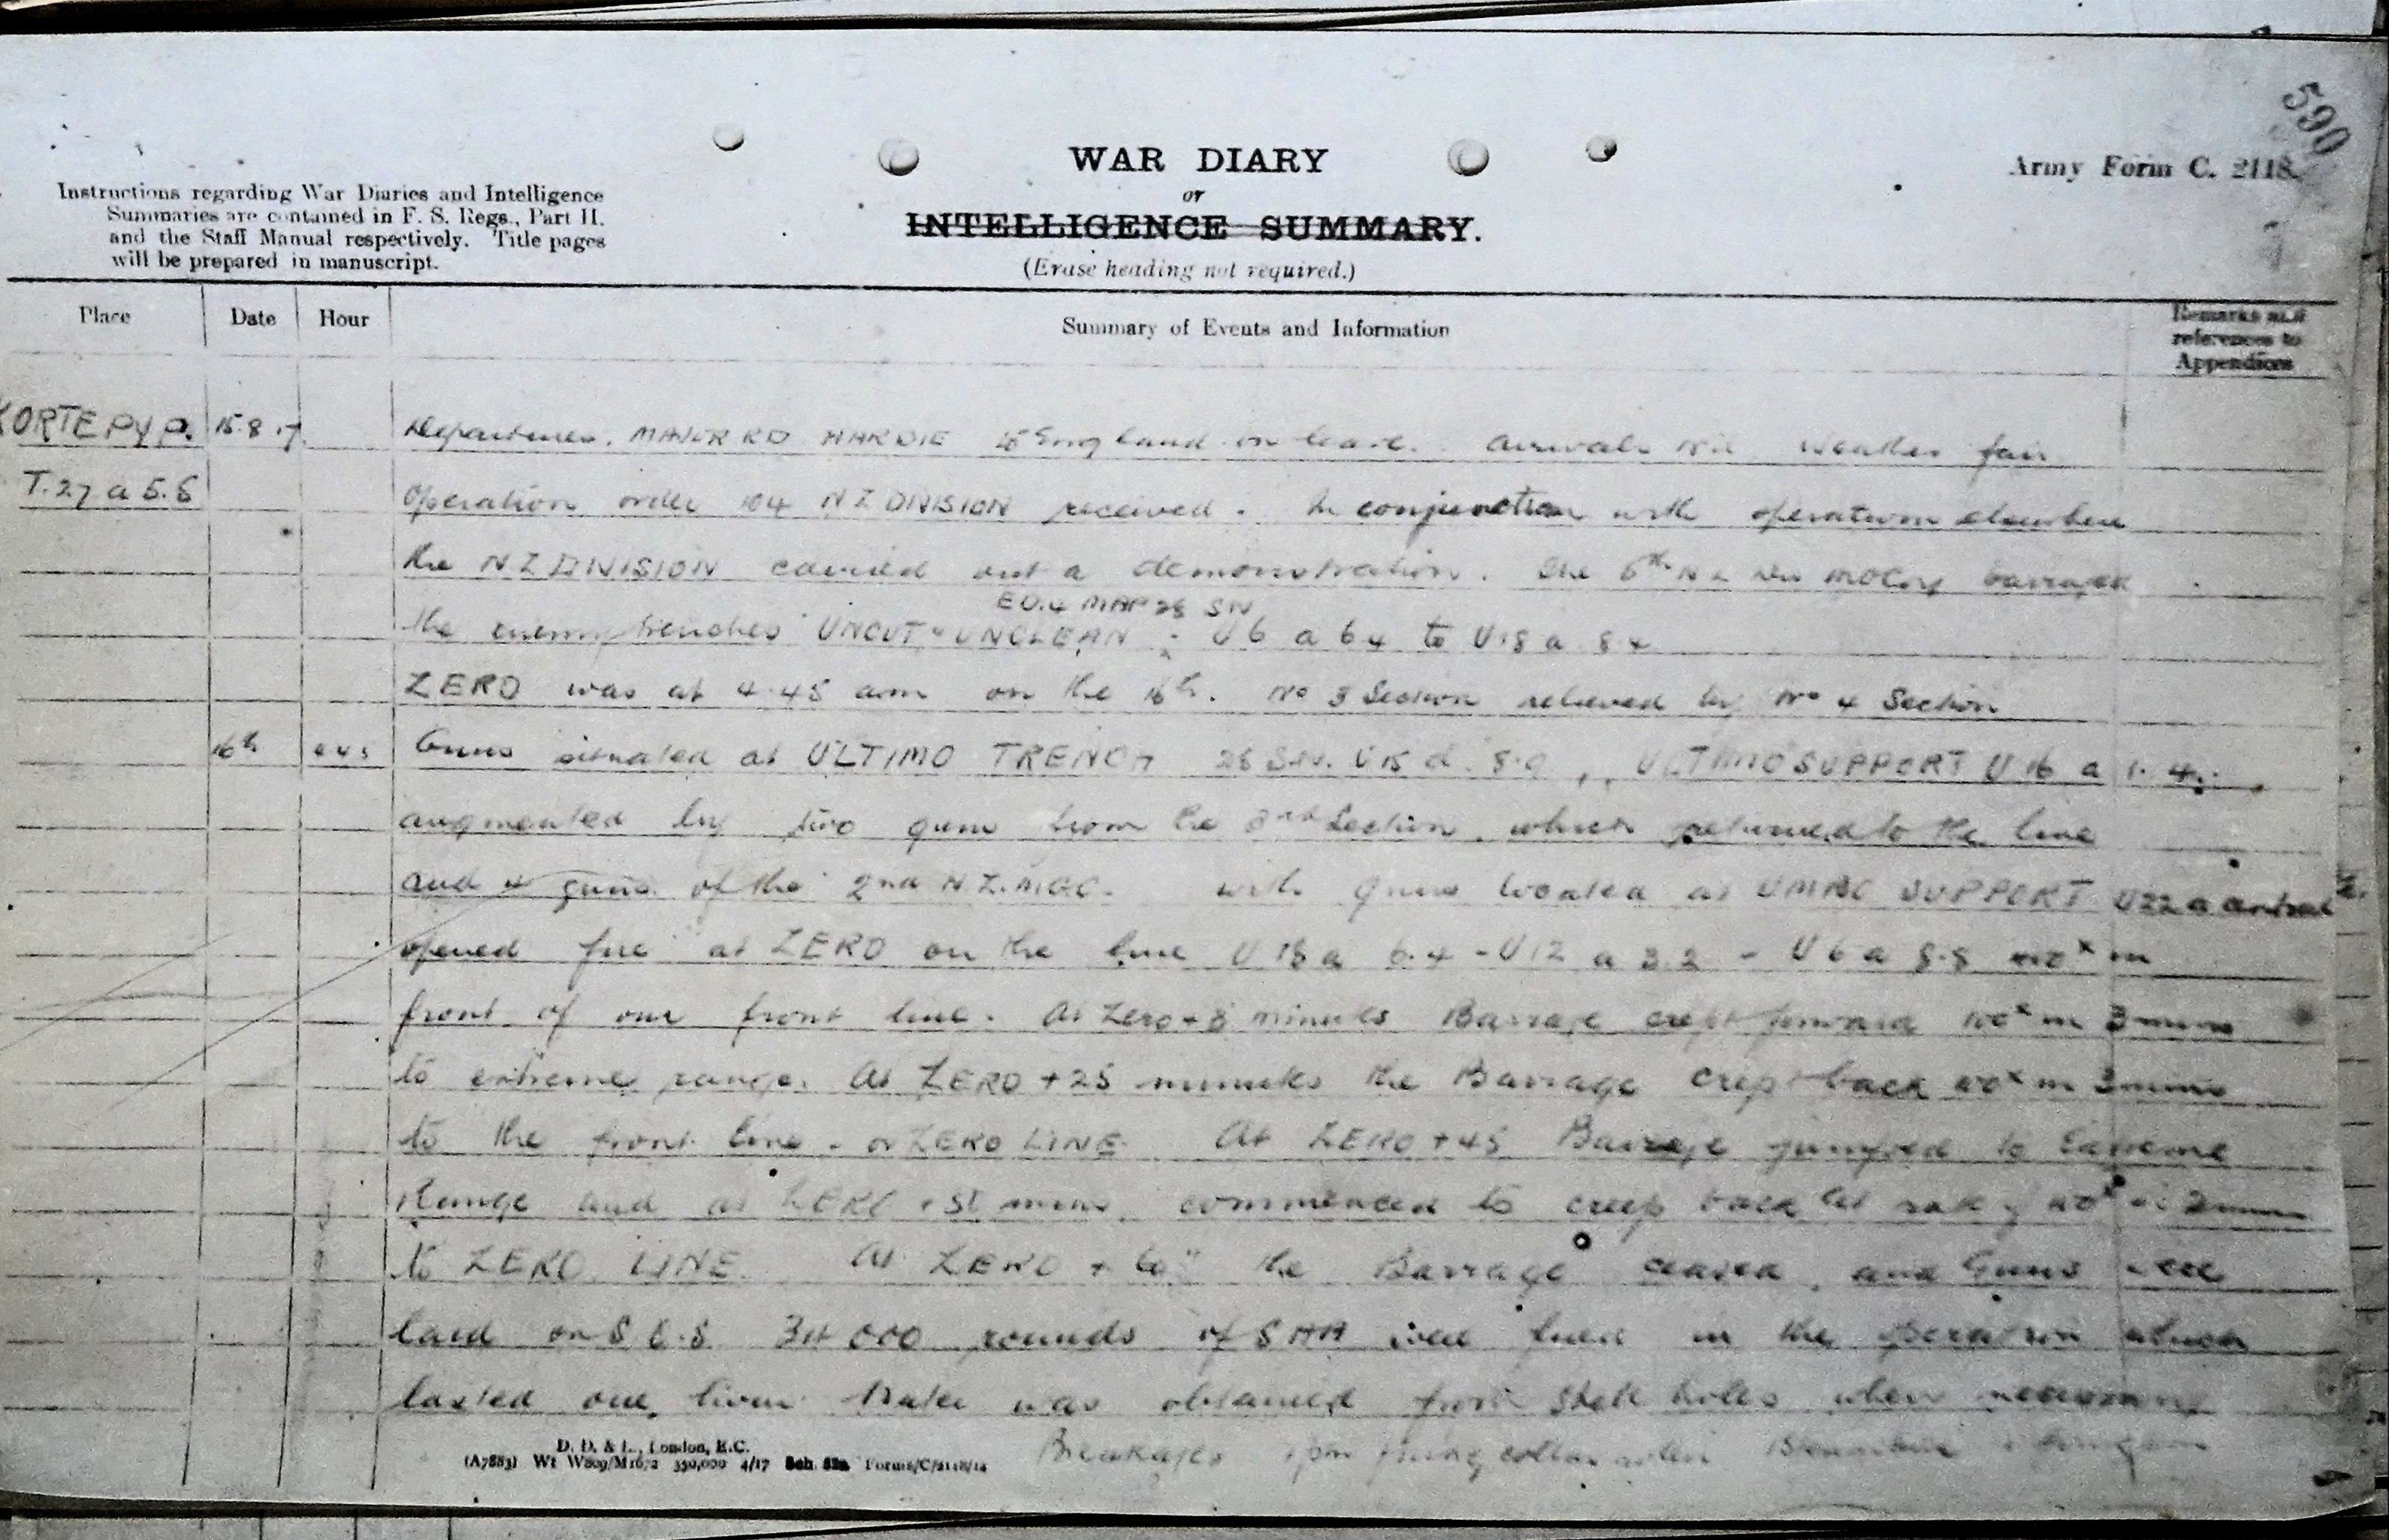 590
WAR DIARY
or
INTELLIGENCE SUMMARY.
(Erase heading not required.)
Army Form C. 2118.
Instructions regarding War Diaries and Intelligence
Summaries are contained in F. S. Regs., Part II.
and the Staff Manual respectively. Title pages
will be prepared in manuscript.
Place Date Hour Summary of Events and Information Remarks and references to Appendices
KORTEPYP. 15.8.17. Departures. MAJOR RD HARDIE to England on leave. Arrivals Nil Weather fair
T.27 a 5.5 Operation order 104 NZ DIVISION received. In conjunction with operations elsewhere
the NZ DIVISION carried out a demonstration. The 5th NZ barraged
ED.4 MAP 28 SW
the enemy trenches UNCUT & UNCLEAN. U 6 a 6 4 to U 18 a 8 4
ZERO was at 4.45 am on the 16th. No 3 Section relieved by No 4 Section
16th 4.45 Guns situated at ULTIMO TRENCH 28 S.W. U 15 d. 8.0, ULTIMO SUPPORT U 16 a 1.4.
augmented by two guns from the 3rd Section, which returned to the line
and 4 guns of the 2nd N.Z.MGC. with guns located at SUPPORT U22 a central
opened fire at ZERO on the line U 18 a 6.4 - U12 a 3.2 - U 6 a 8.8 in
front of our front line. At Zero + 8 minutes Barrage crept forward 100x in 3 mins
to extreme range. At ZERO + 25 minutes the Barrage crept back 100x in mins
to the front line. or ZERO LINE. At ZERO + 45 Barrage jumped to Extreme
Range and at ZERO + 51 mins. commenced to creep back at rate of 100x in 2 mins
to ZERO LINE. At ZERO + 60" the Barrage ceased, and Guns were
laid on S.O.S. 34 000 rounds of SAA were fired in the operation which
lasted one hour. Water was obtained from shell holes when necessary
Breakages firing
D. D. & L., London, E.C.
(A7883) Wt W809/M1672 350,000 4/17 Sch. 52a Forms/C/2118/14